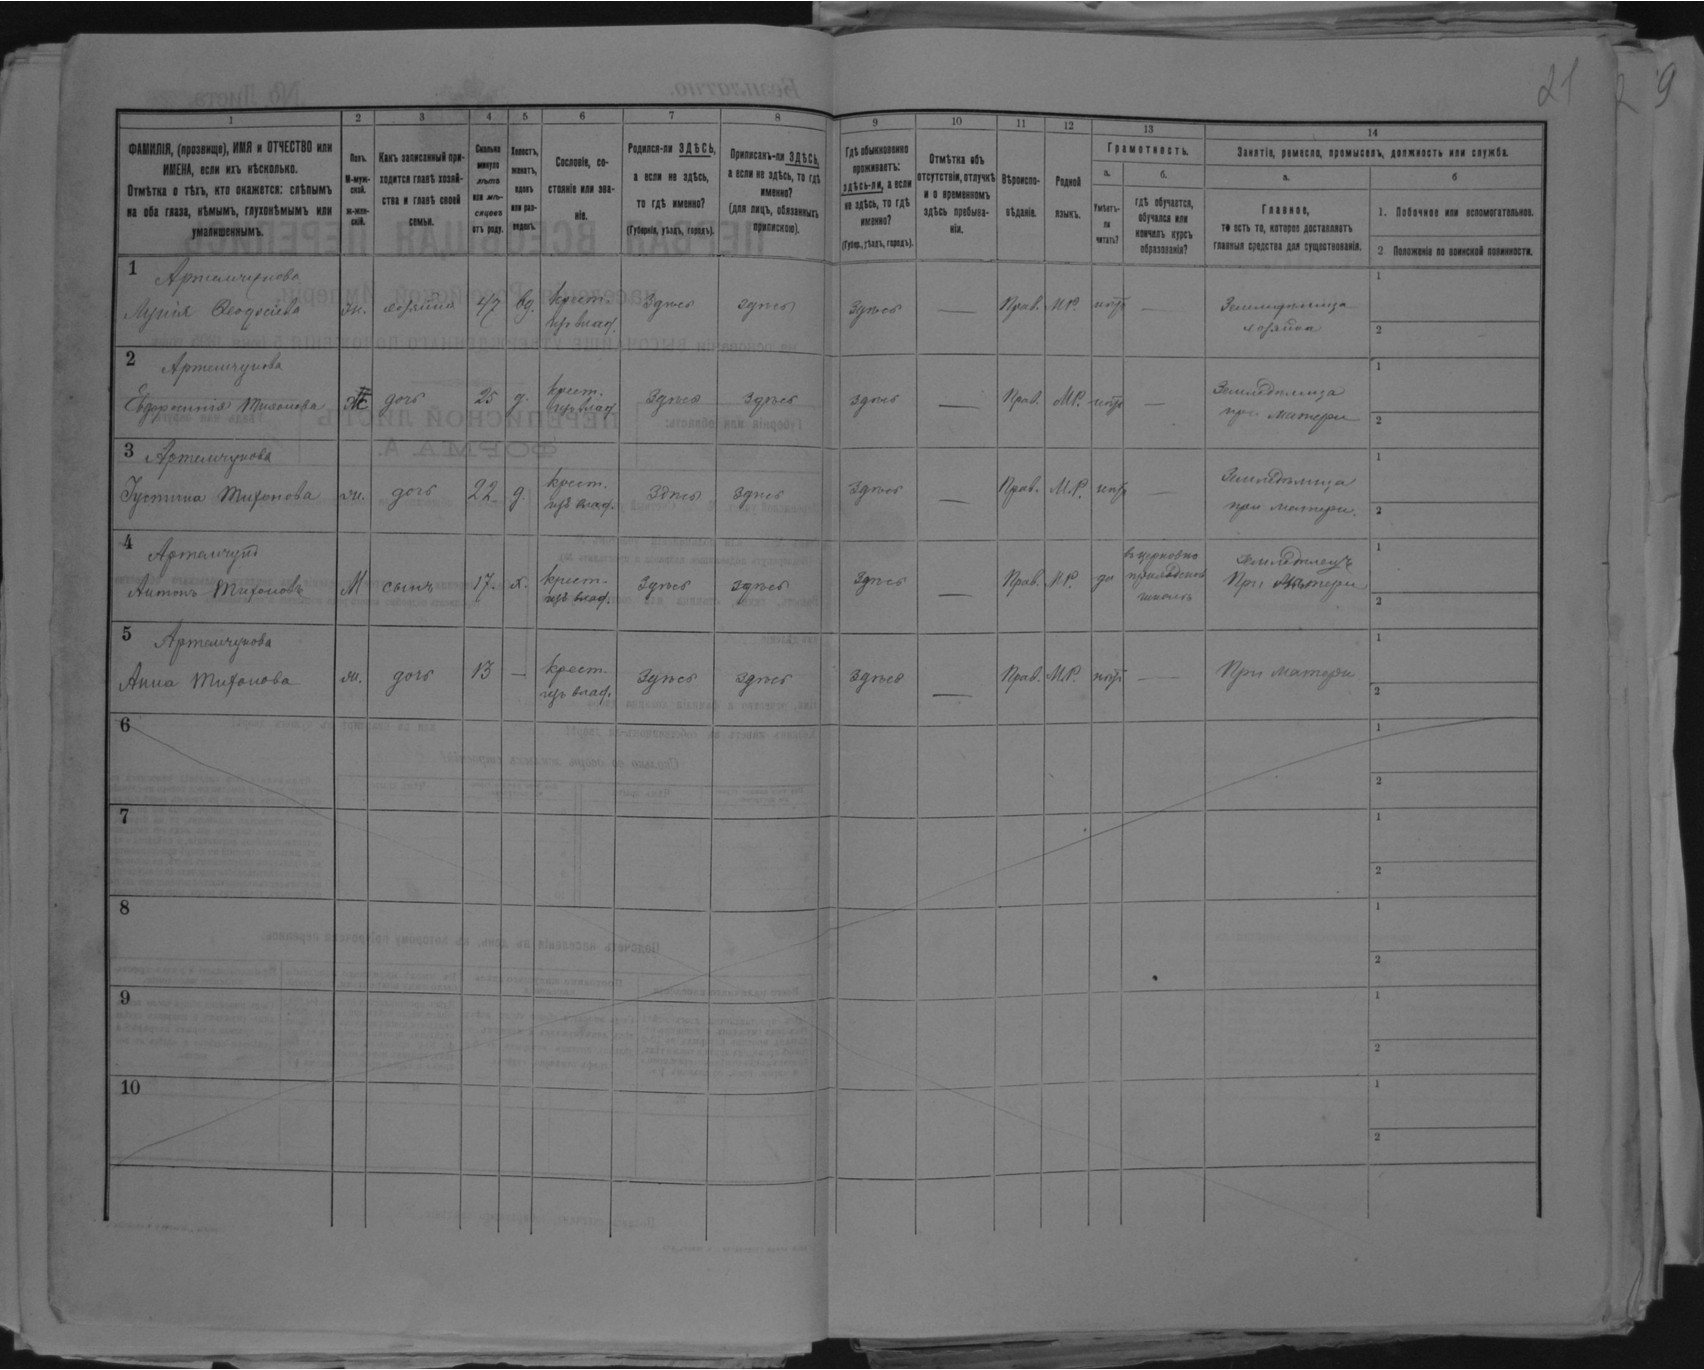 21
9
1
2
3
4
5
6
7
8
9
10
11
12
13
14
ФАМИЛІЯ, (прозвище), ИМЯ и ОТЧЕСТВО или
ИМЕНА, если ихъ нѣсколько.
Отмѣтка о тѣхъ, кто окажется: слѣпымъ
на оба глаза, нѣмымъ, глухонѣмымъ или
умалишеннымъ.
Полъ.
М-муж-
ской.
ж-жен-
скій.
Какъ записанный при-
ходится главѣ хозяй-
ства и главѣ своей
семьи.
Сколько
минуло
лѣтъ
или мѣ-
сяцевъ
отъ роду.
Холостъ,
женатъ,
вдовъ
или раз-
веденъ.
Сословіе, со-
стояніе или зва-
ніе.
Родился-ли ЗДѢСЬ,
а если не здѣсь,
то гдѣ именно?
(Губернія, уѣздъ, городъ).
Приписанъ-ли ЗДѢСЬ,
а если не здѣсь, то гдѣ
именно?
(для лицъ, обязанныхъ
припискою).
Гдѣ обыкновенно
проживаетъ:
здѣсь-ли, а если
не здѣсь, то гдѣ
именно?
(Губер., уѣздъ, городъ).
Отмѣтка объ
отсутствіи, отлучкѣ
и о временномъ
здѣсь пребыва-
ніи.
Вѣроиспо-
вѣданіе.
Родной
языкъ.
Грамотность.
а.
Умѣетъ-
ли
читать?
б.
гдѣ обучается,
обучался или
кончилъ курсъ
образованія?
Занятіе, ремесло, промыселъ, должность или служба.
а.
Главное,
то есть то, которое доставляетъ
главныя средства для существованія.
б
1. Побочное или вспомогательное.
2 Положеніе по воинской повинности.
1
Артемчукова
Ѳеодосіева
ж.
хозяйка
47
вд.
крест.
изъ влад.
Здѣсь
здѣсь
здѣсь
—
Прав.
М.Р.
нѣтъ
—
Земледѣлица
хозяйка
1
2
2
Артемчукова
Евфросинія Тихонова
Ж
дочь
25
д.
крест.
изъ влад.
Здѣсь
здѣсь
здѣсь
—
Прав.
М.Р.
нѣтъ
—
Земледѣлица
при матери
1
2
3
Артемчукова
Густина Тихонова
ж.
дочь
22
д.
крест.
изъ влад.
здѣсь
здѣсь
здѣсь
—
Прав.
М.Р.
нѣтъ
—
Земледѣлица
при матери.
1
2
4
Артемчукъ
Антонъ Тихоновъ
М
сынъ
17.
х.
крест.
изъ влад.
здѣсь
здѣсь
здѣсь
—
Прав.
М.Р.
да
въ церковно
приходской
школѣ
земледѣлецъ
При матери
1
2
5
Артемчукова
Анна Тихонова
ж.
дочь
13
—
крест.
изъ влад.
здѣсь
здѣсь
здѣсь
—
Прав.
М.Р.
нѣтъ
—
При матери
1
2
6
1
2
7
1
2
8
1
2
9
1
2
10
1
2